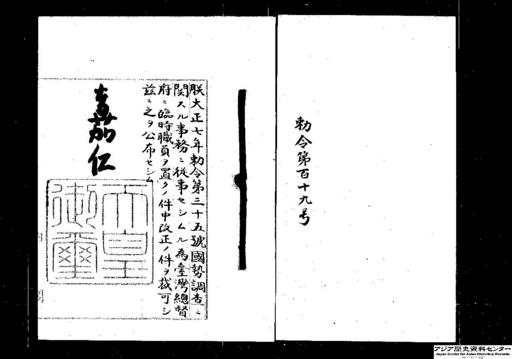 勅令第百十九号
朕大正七年勅令第三十五號國勢調査ニ
関スル事務ニ従事セシムル為臺灣總督
府ニ臨時職員ヲ置クノ件中改正ノ件ヲ裁可シ
茲ニ之ヲ公布セシム
嘉仁
天皇
御璽
アジア歴史資料センター
Japan Center for Asian Historical Records